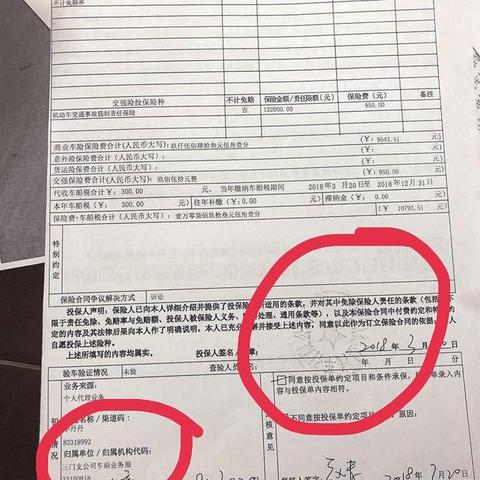 不计免赔率
交强险投保险种 不计免赔 保险金额/责任限额（元） 保险费（元） 备注
机动车交通事故强制责任保险 否 122000.00 950.00
商业车险保险费合计（人民币大写）：玖仟伍佰肆拾叁元伍角壹分 （￥： 9543.51 元）
意外险保险费合计（人民币大写）： （￥： 元）
货运险保险费合计（人民币大写）： （￥： 元）
交强险保险费合计（人民币大写）：玖佰伍拾元整 （￥： 950.00 元）
代收车船税合计￥：300.00 元， 当年缴纳车船税期间 2018年3月20日至2018年12月31日
本年车船税（￥： 300.00 元）往年补缴（￥： 0.00 元） 滞纳金（￥： 0.00 元）
保险费+车船税（人民币大写）：壹万零柒佰玖拾叁元伍角壹分 （￥： 10793.51 元）
特别约定
保险合同争议解决方式 诉讼
投保人声明：保险人已向本人详细介绍并提供了投保险种所适用的条款，并对其中免除保险人责任的条款（包括但不
限于责任免除、免赔率与免赔额、投保人被保险人义务、赔偿处理、通用条款等），以及本保险合同中付费约定和特别约
定的内容及其法律后果向本人作了明确说明，本人已充分理解并接受上述内容，同意以此作为订立保险合同的依据，本人
自愿投保上述险种。
上述所填写的内容均属实。 投保人签名/签章：
2018 年 3 月 20 日
验车验证情况 未验 查验人员签名： 年 月 日
业务来源：
个人代理业务
渠道码：
83318992
归属单位/归属机构代码：
三门支公司车商业务部
33100818
同意按投保单约定项目和条件承保，保单录入内
容与投保单内容相符。
不同意按投保单约定项目承保，原因：
核意见
2018年3月20